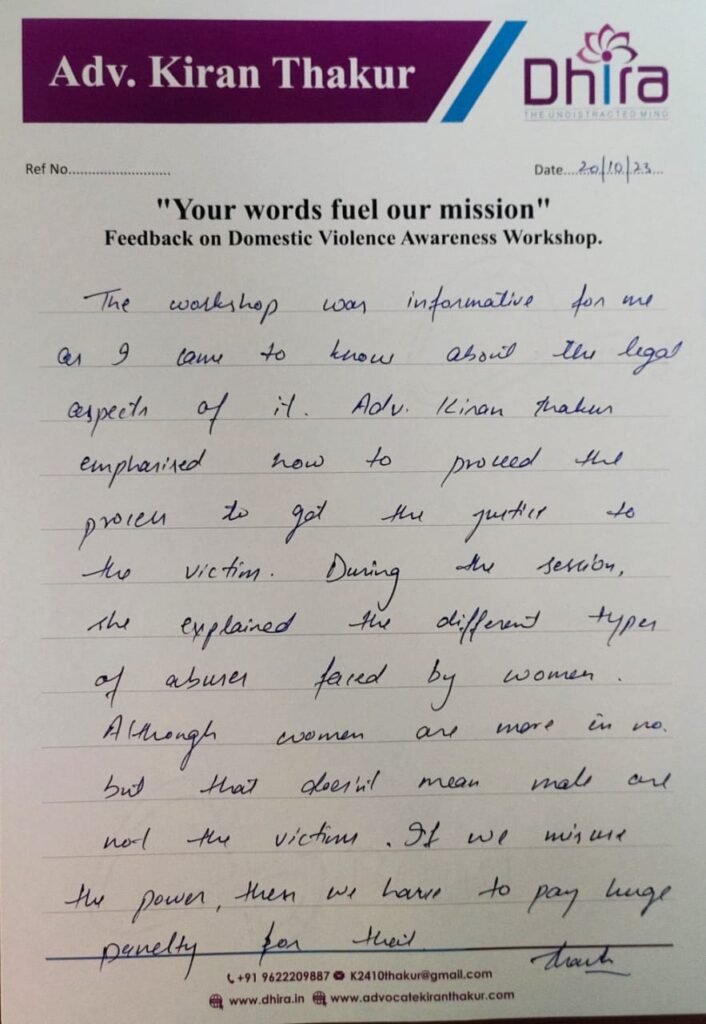 Adv. Kiran Thakur
Dhira
THE UNDISTRACTED MIND
Ref No..........................
Date....20/10/23...
"Your words fuel our mission"
Feedback on Domestic Violence Awareness Workshop.
The workshop was informative for me
as I came to know about the legal
aspects of it. Adv. Kiran Thakur
emphasised how to proceed the
process to get the justice to
the victim. During the session,
she explained the different types
of abuses faced by women.
Although women are more in no.
but that doesn't mean male are
not the victims. If we misuse
the power, then we have to pay huge
panelty for that.
+91 9622209887 K2410thakur@gmail.com
www.dhira.in www.advocatekiranthakur.com